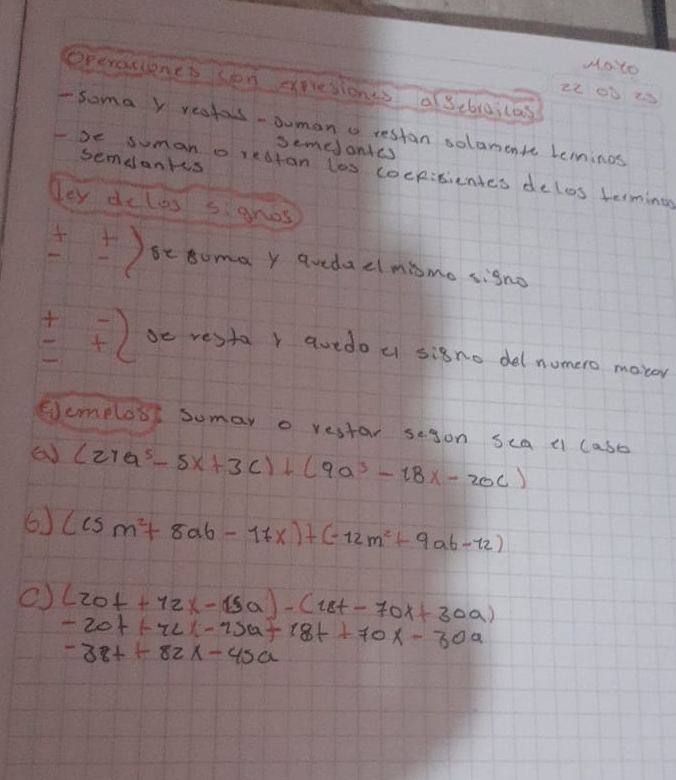 Mayo
22 05 25
Operaciones con expresiones algebraicas
- Soma y restas - suman o restan solamente terminos
semejantes
- se suman o restan los coefisientes de los terminos
semejantes
Ley de los signos
+ + ) se suma y queda el mismo signo
- -
+ - ) se resta y queda el signo del numero mayor
- +
-
Ejemplos: Sumar o restar segon sea el caso
a) (21a⁵ - 5x + 3c) + (9a⁵ - 18x - 20c)
b) (15m² + 8ab - 11x) + (-12m² + 9ab - 12)
c) (20t + 12x - 15a) - (18t - 70x + 30a)
- 20t + 12x - 15a + 18t + 70x - 30a
- 38t + 82x - 45a